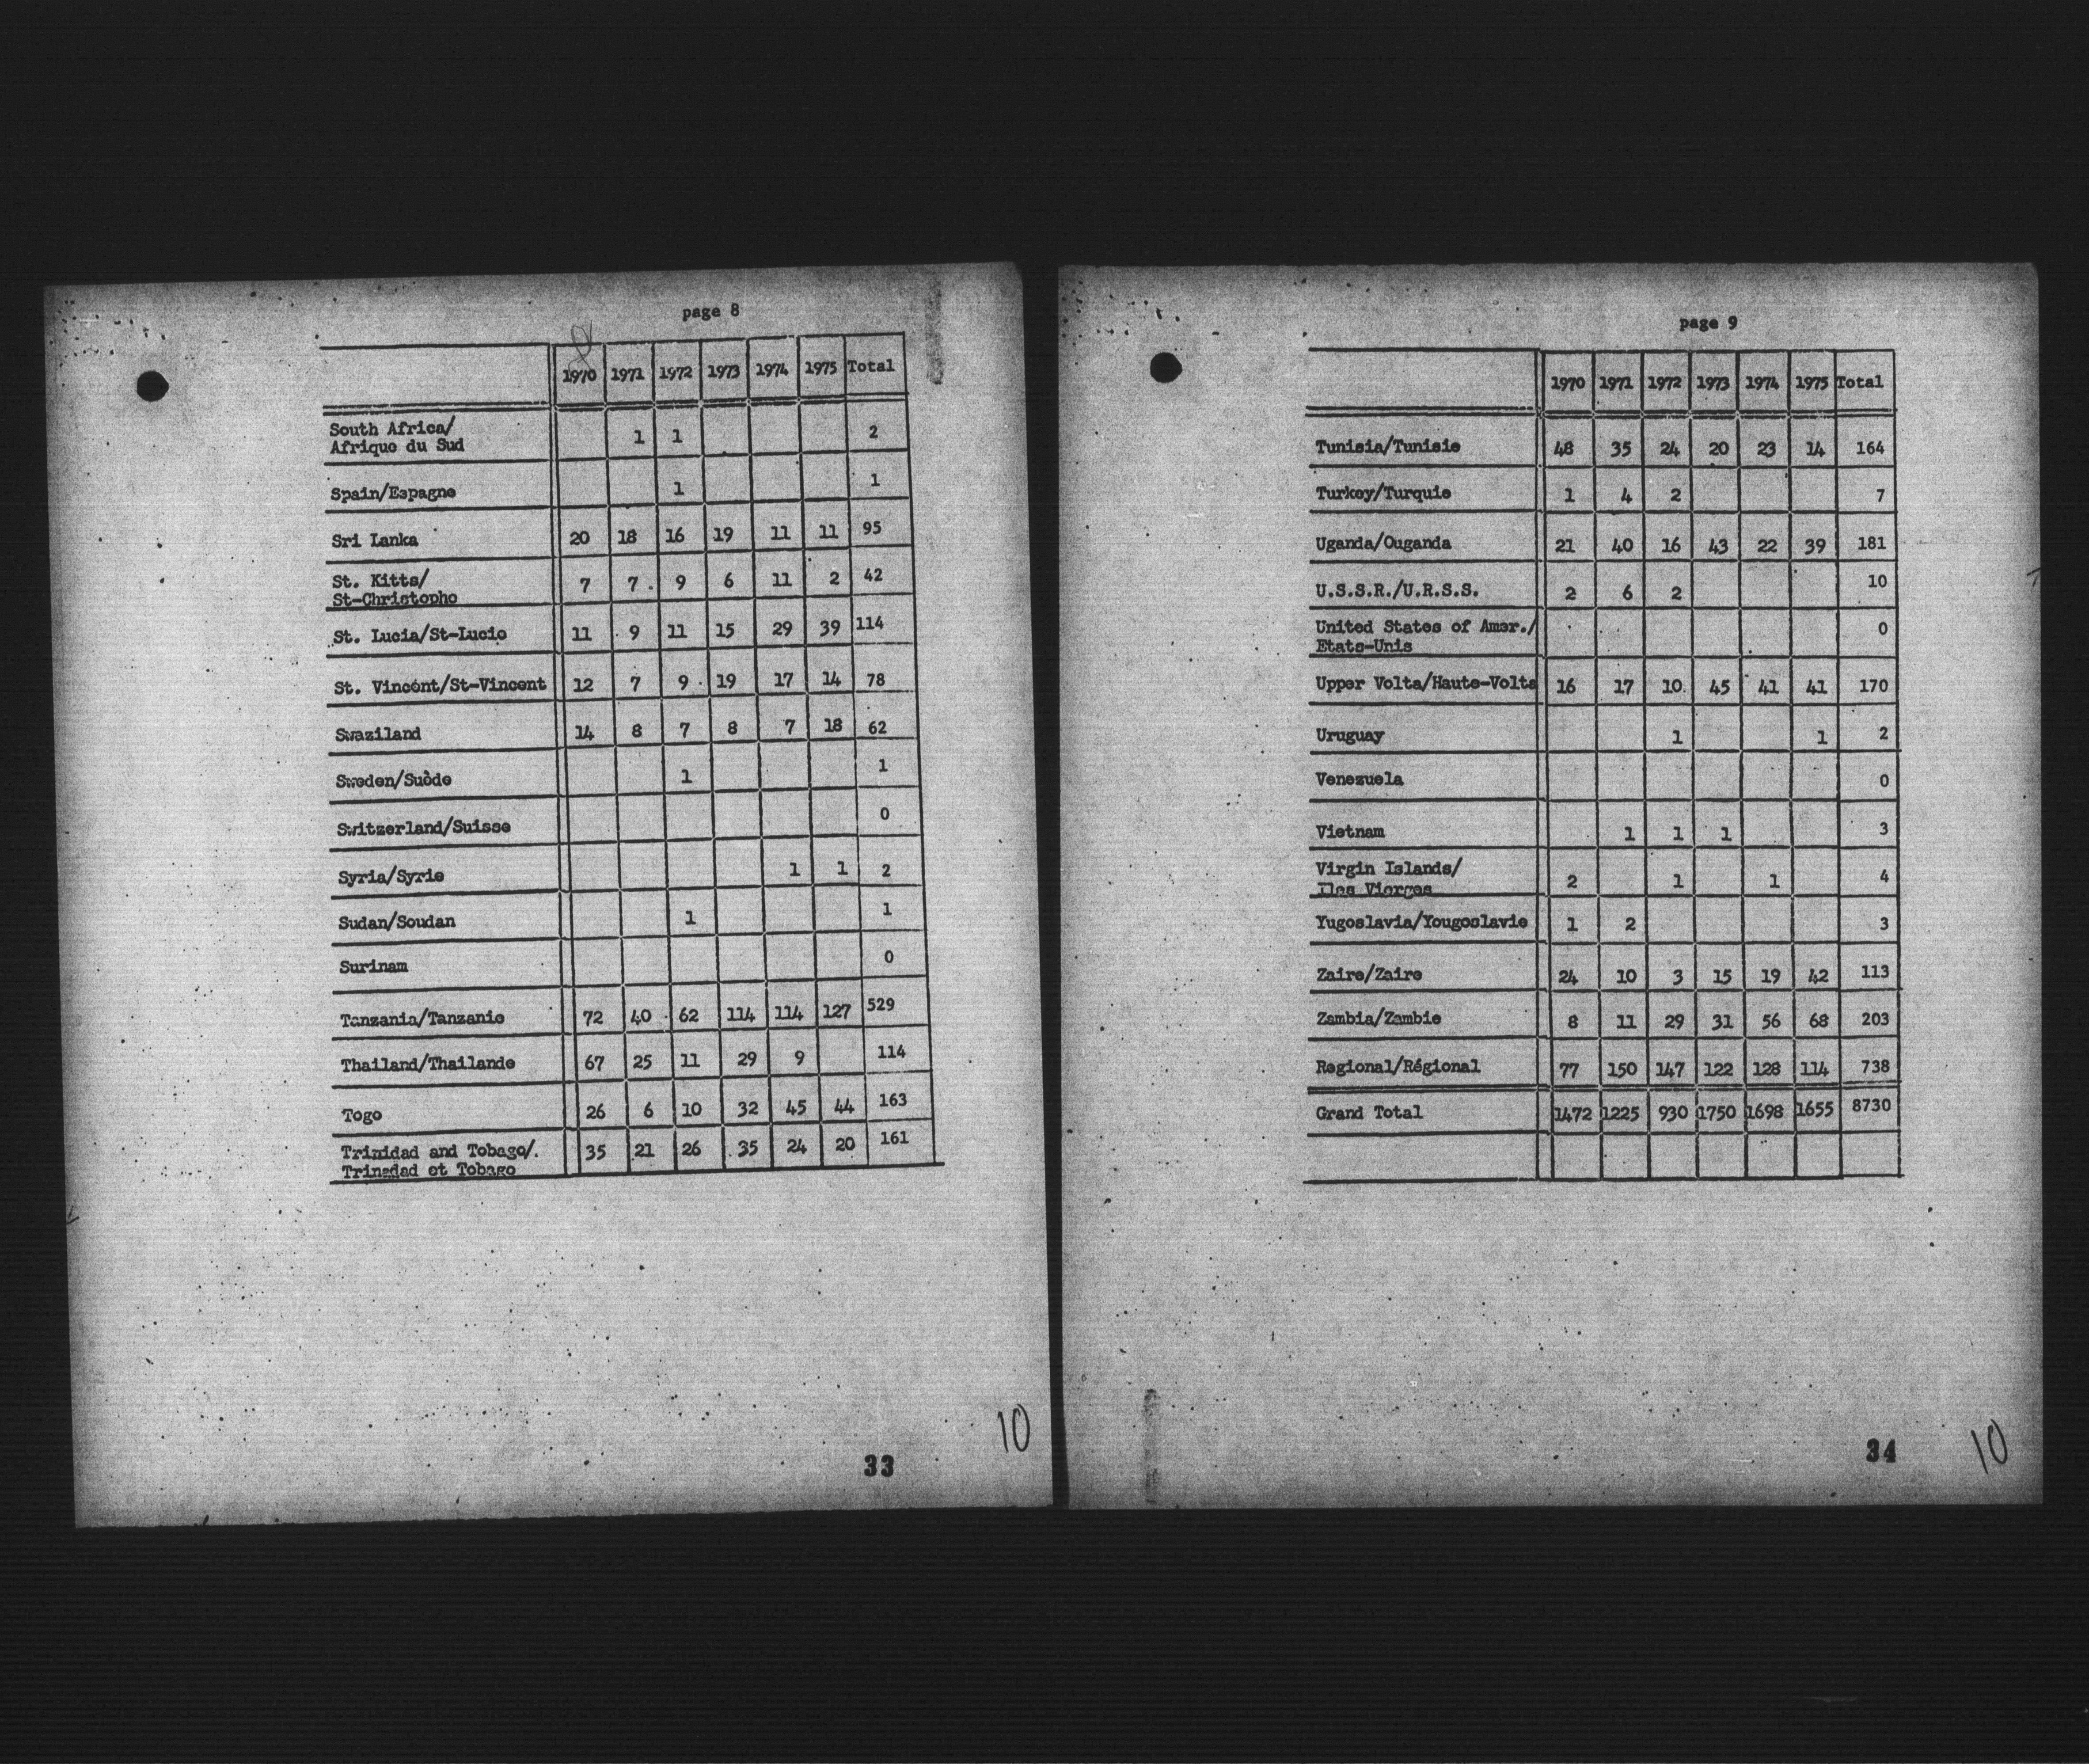 page 8
1970 1971 1972 1973 1974 1975 Total
South Africa/
Afrique du Sud 1 1 2
Spain/Espagne 1 1
Sri Lanka 20 18 16 19 11 11 95
St. Kitts/
St-Christophe 7 7 9 6 11 2 42
St. Lucia/St-Lucie 11 9 11 15 29 39 114
St. Vincent/St-Vincent 12 7 9 19 17 14 78
Swaziland 14 8 7 8 7 18 62
Sweden/Suède 1 1
Switzerland/Suisse 0
Syria/Syrie 1 1 2
Sudan/Soudan 1 1
Surinam 0
Tanzania/Tanzanie 72 40 62 114 114 127 529
Thailand/Thailande 67 25 11 29 9 114
Togo 26 6 10 32 45 44 163
Trinidad and Tobago/
Trinidad et Tobago 35 21 26 35 24 20 161
10
33
page 9
1970 1971 1972 1973 1974 1975 Total
Tunisia/Tunisie 48 35 24 20 23 14 164
Turkey/Turquie 1 4 2 7
Uganda/Ouganda 21 40 16 43 22 39 181
U.S.S.R./U.R.S.S. 2 6 2 10
United States of Amer./
Etats-Unis 0
Upper Volta/Haute-Volta 16 17 10 45 41 41 170
Uruguay 1 1 2
Venezuela 0
Vietnam 1 1 1 3
Virgin Islands/
Iles Vierges 2 1 1 4
Yugoslavia/Yougoslavie 1 2 3
Zaire/Zaire 24 10 3 15 19 42 113
Zambia/Zambie 8 11 29 31 56 68 203
Regional/Régional 77 150 147 122 128 114 738
Grand Total 1472 1225 930 1750 1698 1655 8730
34
10